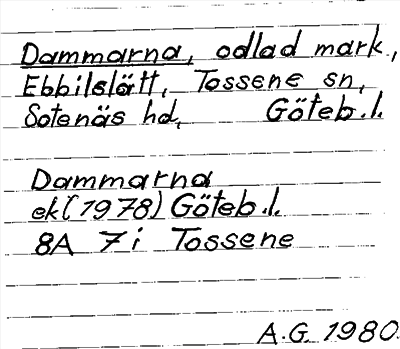 Dammarna, odlad mark,
Ebbilslätt, Tossene sn,
Sotenäs hd, Göteb.l.
Dammarna
ek (1978) Göteb.l.
8A 7i Tossene
A.G. 1980.